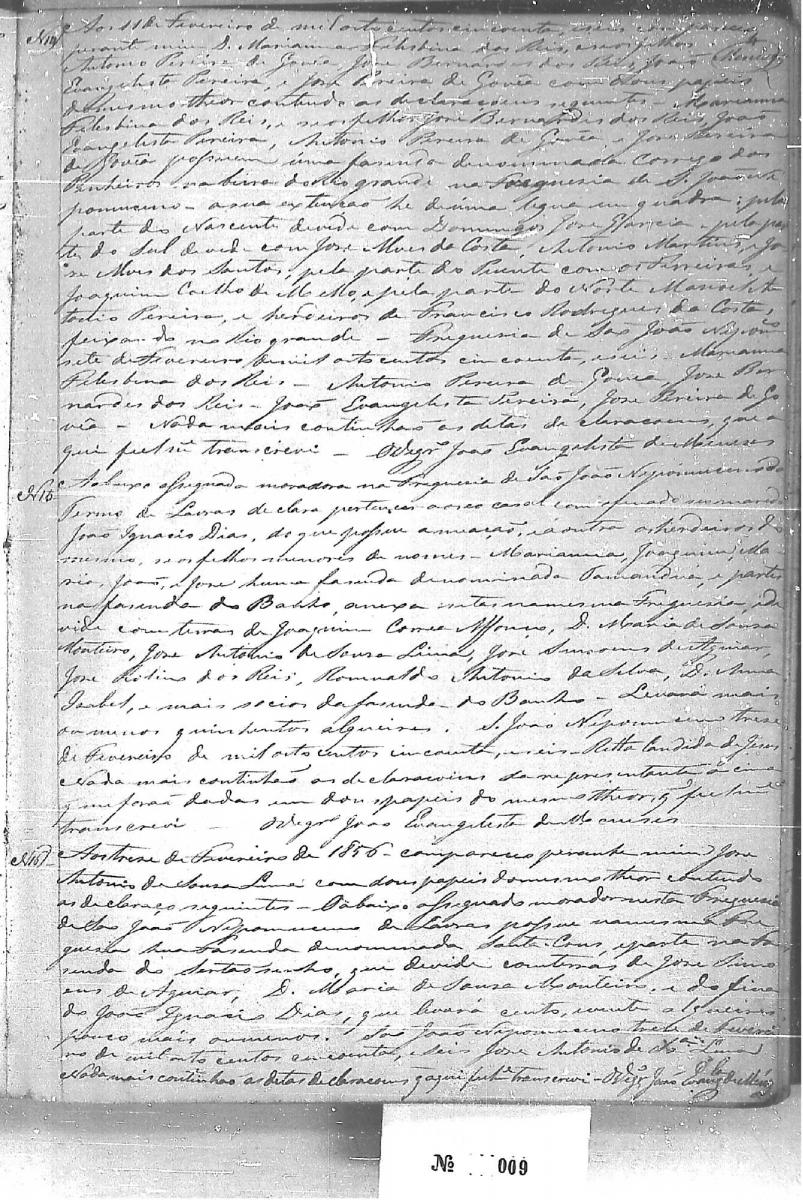 Nº14 Aos 11 de Fevereiro de mil oito centos cincoenta, e seis compareceo
perante mim D. Marianna Felesbina dos Reis, e seos filhos
Antonio Pereira de Gouvêa, Jose Bernardes dos Reis, João
Evangelista Pereira, e Jose Pereira de Gouvêa com dous papeis
do mesmo theor contendo as declaracoens seguintes - Marianna
Felesbina dos Reis, e seos filhos Jose Bernardes dos Reis, João
Evangelista Pereira, Antonio Pereira de Gouvêa, e Jose Pereira
de Gouvêa possuem uma fasenda denominada Corrego dos
Pinheiros na beira do Rio grande na Freguesia de S. João Ne
pomuceno - a sua extenção he de uma legua em quadra: pela
parte do Nascente devide com Domingos Jose Garcia - pela par
te do Sul devide com Jose Alves da Costa, Antonio Martins, e Jo
se Alves dos Santos, pela parte do Puente com os Ferreiras, e
Joaquim Coelho de Mello, e pela parte do Norte
Pereira, e herdeiros de Francisco Rodrigues da Costa,
feixando no Rio grande - Freguesia de São João Nepom.
sete de Fevereiro de mil oito centos cincoenta, e seis - Marianna
Felesbina dos Reis - Antonio Pereira de Gouvêa, Jose Ber
nardes dos Reis - João Evangelista Pereira, Jose Pereira de Go
vêa - Nada mais continhão as ditas declaracoens, que a
qui fielm.e transcrevi - O Vigr.o João Evangelista de Meneses
Nº15 A abaixo assegnada moradora na Freguesia de São João Nepomuceno do
Termo de Lavras declara pertencer a seo casal com o finado seo marido
João Ignacio Dias, do que possue a meação, e a outra os herdeiros do
mesmo, seos filhos menores de nomes - Marianna, Joaquim, Ma
ria, João, e Jose huma fasenda denominada Tamanduá, e partes
na fasenda do Banho, anexa nestas na mesma Freguesia, e de
vide com terras de Joaquim Correa Affonço, D. Maria de Sousa
Monteiro, Jose Antonio de Sousa Lima, Jose Simoens de Aguiar,
Jose dos Reis, Romualdo Antonio da Silva, D. Anna
Isabel, e mais socios da fasenda do Banho - Levará mais
ou menos quinhentos alqueires. S. João Nepomuceno trese
de Fevereiro de mil oito centos cincoenta, e seis - Ritta Candida de Jesus
Nada mais continhão as declaracoens da representante á cima
q me forão dadas em dous papeis do mesmo theor, q fielm.e
transcrevi - O Vigr.o João Evangelista de Meneses
Nº16 Aos trese de Fevereiro de 1856 - compareceo perante mim Jose
Antonio de Sousa Lima com dous papeis do mesmo theor contendo
as declaraço seguintes - O abaixo assegnado morador nesta Freguesia
de São João Nepomuceno de Lavras possue na mesma Fre
guesia hua Fasenda denominada Santa Crus, e parte na fa
senda do Sertãosinho, que devide com terras de Jose Simo
ens de Aguiar, D. Maria de Sousa Monteiro, e do fina
do João Ignacio Dias, que levará cento, e vinte alqueires
pouco mais ou menos. São João Nepomuceno trese de Feverei
ro de mil oito centos cincoenta, e seis Jose Antonio de Sousa Lima
Nada mais continhão as ditas declaracoens q aqui fielm.e transcrevi - O Vigr.o João Evang.ta de Menezes
Nº 009